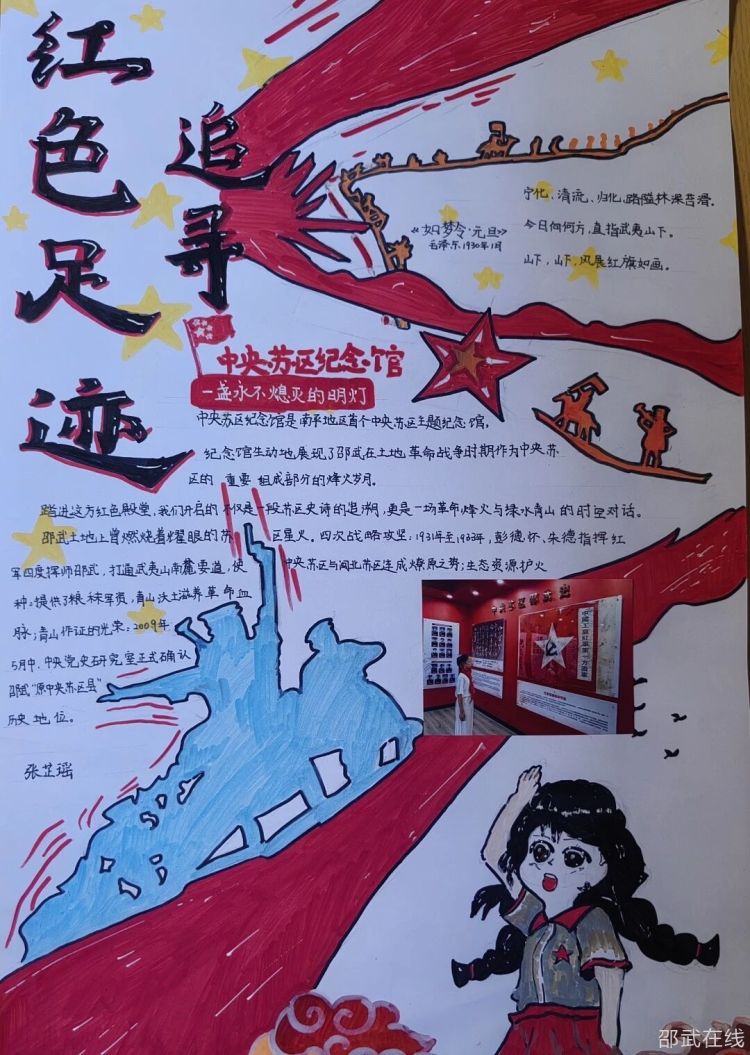 追寻
红色足迹
《如梦令·元旦》
毛泽东1930年1月
宁化、清流、归化,路隘林深苔滑.
今日向何方,直指武夷山下.
山下,山下,风展红旗如画。
中央苏区纪念馆
一盏永不熄灭的明灯
中央苏区纪念馆是南平地区首个中央苏区主题纪念馆,
纪念馆生动地展现了邵武在土地革命战争时期作为中央苏
区的 重要组成部分的烽火岁月.
踏进这方红色殿堂,我们开启的不仅是一段苏区史诗的追溯,更是一场革命烽火与绿水青山的时空对话。
邵武土地上曾燃烧着耀眼的苏 区星火。四次战略攻坚:1931年至1933年,彭德怀、朱德指挥红
军四度挥师邵武,打通武夷山南麓要道,使 中央苏区与闽北苏区连成燎原之势;生态资源护火
种:提供了粮、林军资,青山沃土滋养革命血
脉;青山作证的光荣:2009年
5月中,中央党史研究室正式确认
邵武"原中央苏区县"
历史地位。
张芷瑶
中国工农红军第一方面军
邵武在线